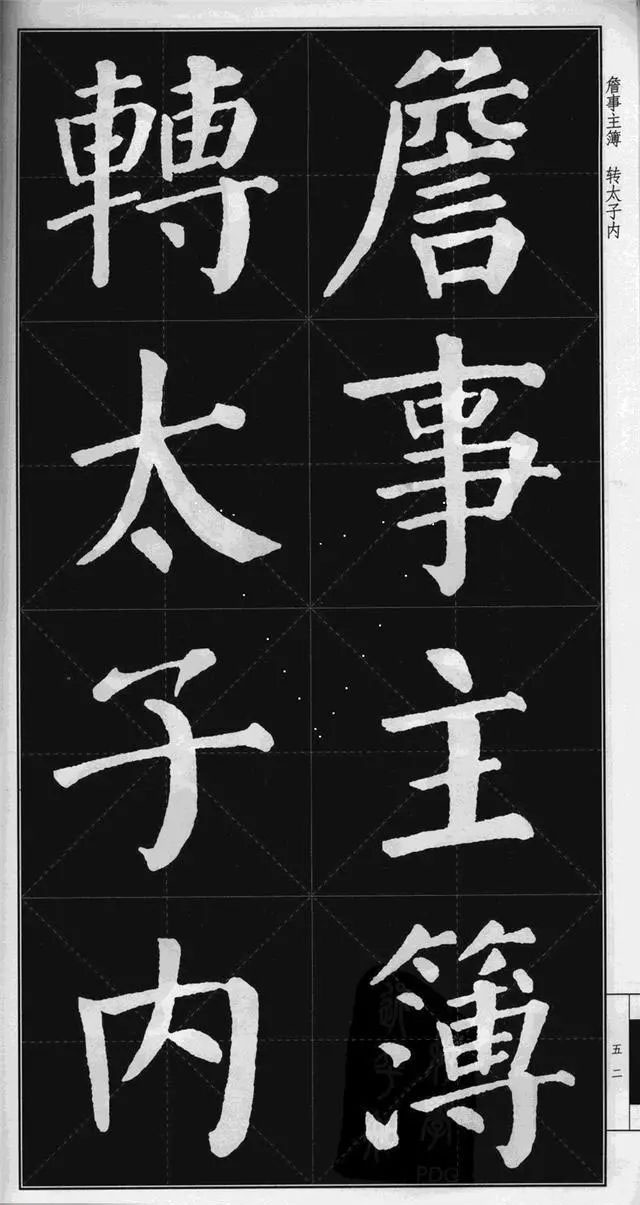 詹事主簿
轉太子内
詹事主簿 转太子内
五二
PDG